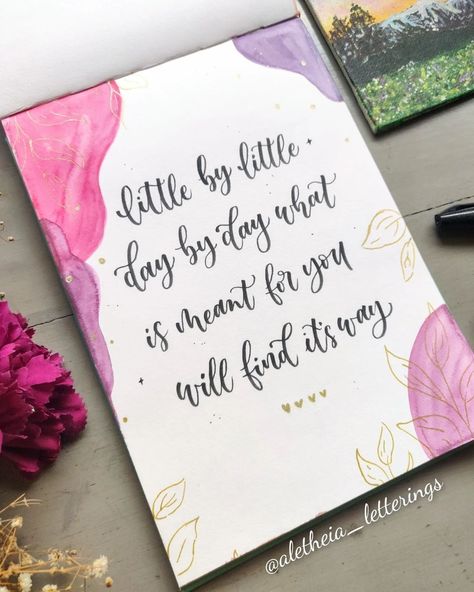 little by little
day by day what
is meant for you
will find it's way
@aletheia_letterings